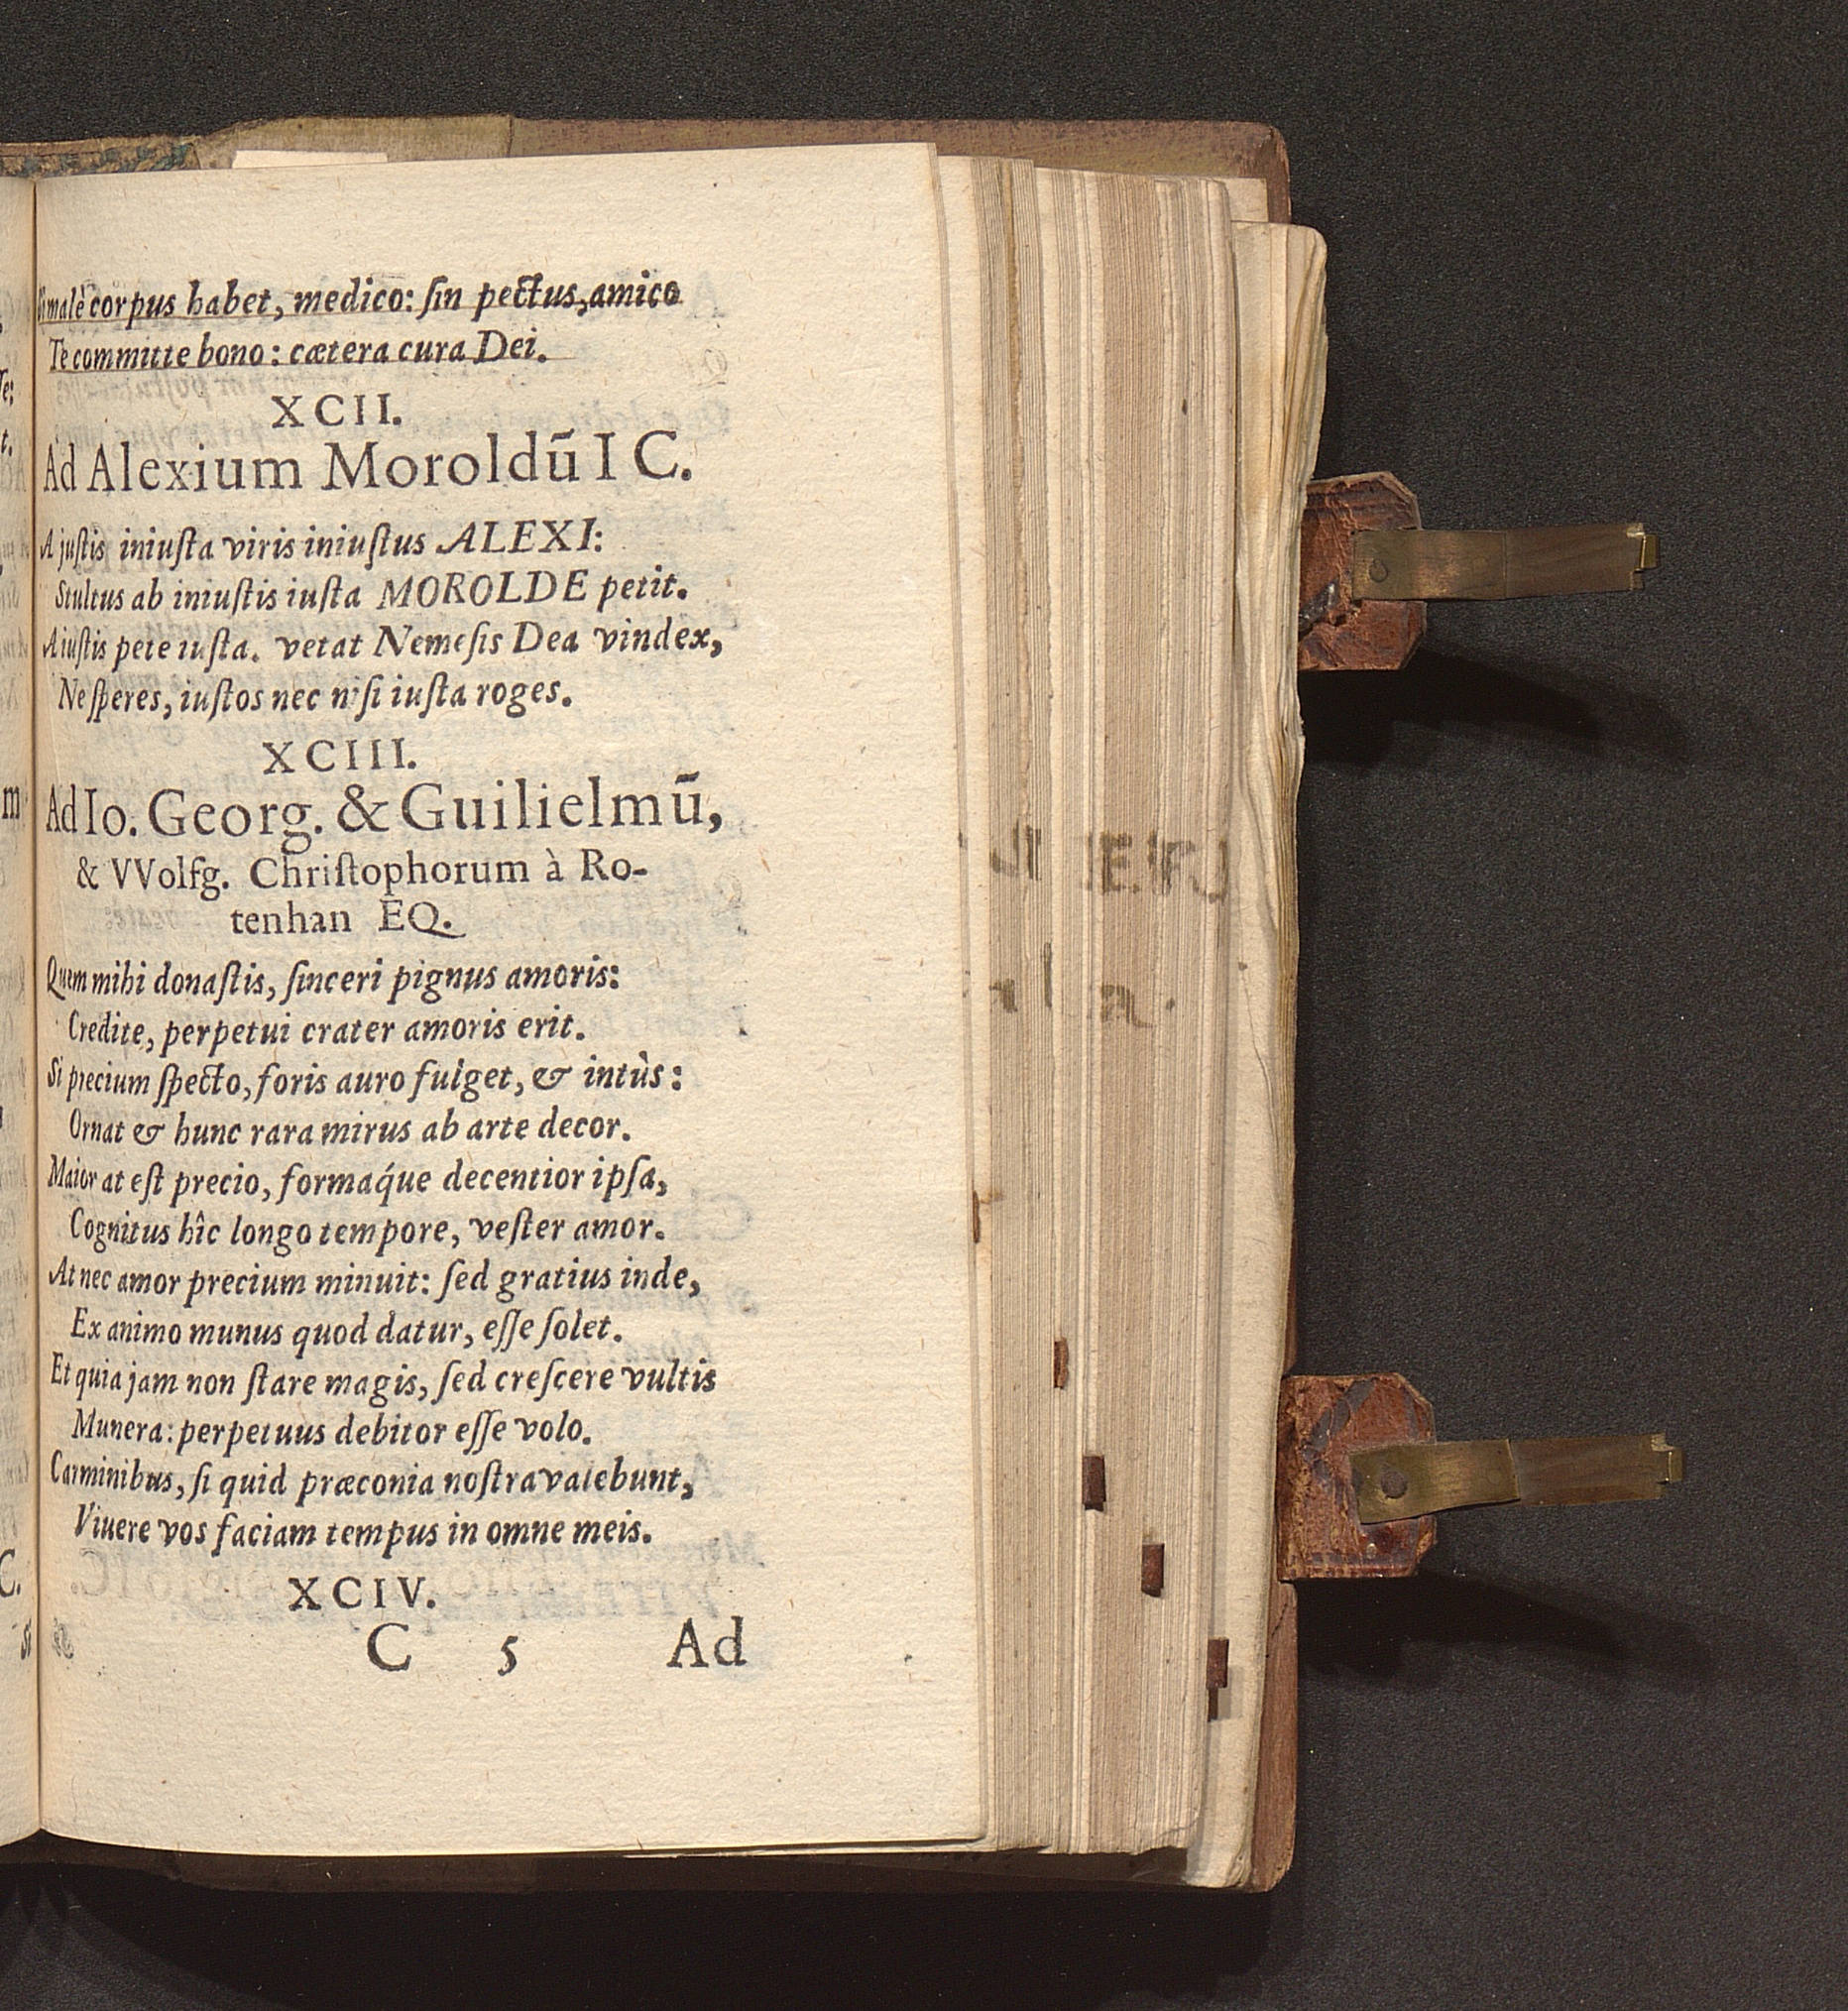 Si malè corpus habet, medico: ſin pectus, amico
Te committe bono: cætera cura Dei.
XCII.
Ad Alexium Moroldū I C.
A juſtis iniuſta viris iniuſtus ALEXI:
Stultus ab iniuſtis iuſta MOROLDE petit.
A iuſtis pete iuſta. vetat Nemeſis Dea vindex,
Ne ſperes, iuſtos nec niſi iuſta roges.
XCIII.
Ad Io. Georg. & Guilielmū,
& VVolfg. Chriſtophorum à Ro-
tenhan EQ.
Quem mihi donaſtis, ſinceri pignus amoris:
Credite, perpetui crater amoris erit.
Si precium ſpecto, foris auro fulget, & intùs:
Ornat & hunc rara mirus ab arte decor.
Maior at eſt precio, formaq́ue decentior ipſa,
Cognitus hîc longo tempore, veſter amor.
At nec amor precium minuit: ſed gratius inde,
Ex animo munus quod datur, eſſe ſolet.
Et quia jam non ſtare magis, ſed creſcere vultis
Munera: perpetuus debitor eſſe volo.
Carminibus, ſi quid præconia noſtra valebunt,
Viuere vos faciam tempus in omne meis.
XCIV.
C 5 Ad